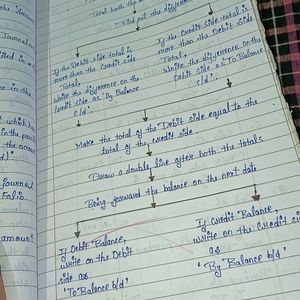 Total both the
Find out the difference
If the Debit side total is
more than the Credit side
Total,
Write the difference on the
Credit side as 'By Balance
c/d'.
If the Credit side total is
more than the Debit side
Total,
Write the difference on the
Debit side as 'To Balance
c/d'.
Make the total of the Debit side equal to the
total of the credit side.
Draw a double line after both the totals
Bring forward the balance on the next date
If Debit Balance,
write on the Debit
side as
'To Balance b/d'
If Credit Balance,
write on the Credit
as
'By Balance b/d'
Journal
in the
which
journal
Folio
amount